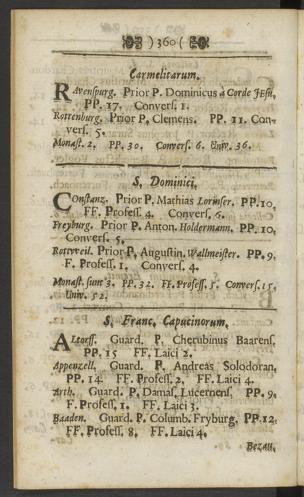 ) 360 (
Carmelitarum.
RAvenspurg. Prior P. Dominicus à Corde JEsu,
PP. 17. Convers. 1.
Rottenburg. Prior P. Clemens. PP. 11. Con-
vers. 5.
Monast. 2. PP. 30. Convers. 6. Univ. 36.
S. Dominici.
COnstanz. Prior P. Mathias Lorinser. PP. 10.
FF. Profess. 4. Convers. 6.
Freyburg. Prior P. Anton. Holdermann. PP. 10.
Convers. 5.
Rottweil. Prior P. Augustin. Wallmeister. PP. 9.
F. Profess. 1. Convers. 4.
Monast. sunt 3. PP. 32. FF. Profess. 5. Convers. 15.
Univ. 52.
S. Franc. Capucinorum.
ALtorff. Guard. P. Cherubinus Baarens.
PP. 15 FF. Laici 2.
Appenzell. Guard. P. Andreas Solodoran.
PP. 14. FF. Profess. 2. FF. Laici 4.
Arth. Guard. P. Damas. Lucernens. PP. 9.
F. Profess. 1. FF. Laici 3.
Baaden. Guard. P. Columb. Fryburg. PP. 12.
FF. Profess. 8. FF. Laici 4.
Bezau.